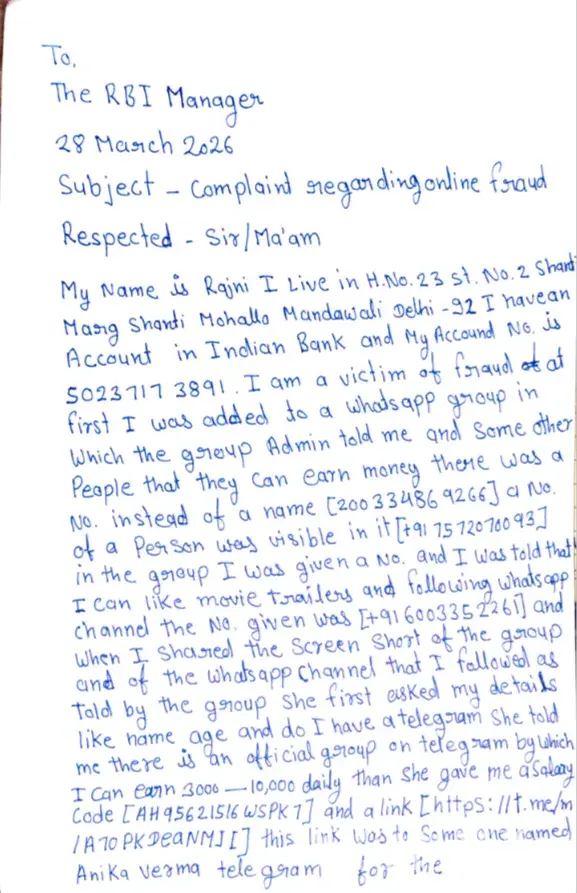 To,
The RBI Manager
28 March 2026
Subject - Complaind regarding online fraud
Respected - Sir/Ma'am
My Name is Rajni I Live in H.No. 23 St. No. 2 Shanti
Marg Shanti Mohalla Mandawali Delhi -92 I have an
Account in Indian Bank and My Accound No. is
50237173891. I am a victim of fraud at
first I was added to a whatsapp group in
Which the group Admin told me and Some other
People that they can earn money there was a
No. instead of a name [200334869266] a No.
of a Person was visible in it [+91 7572070093]
in the group I was given a No. and I was told that
I can like movie trailers and following whatsapp
channel the No. given was [+91 6003352261] and
when I Shared the Screen Short of the group
and of the whatsapp Channel that I followed as
Told by the group She first asked my details
like name age and do I have a telegram She told
me there is an official group on telegram by which
I Can earn 3000 — 10,000 daily than She gave me a Salary
Code [AH95621516WSPK7] and a link [https://t.me/m
/A70PKDeaNMJ[] this link was to Some one named
Anika Verma telegram for the